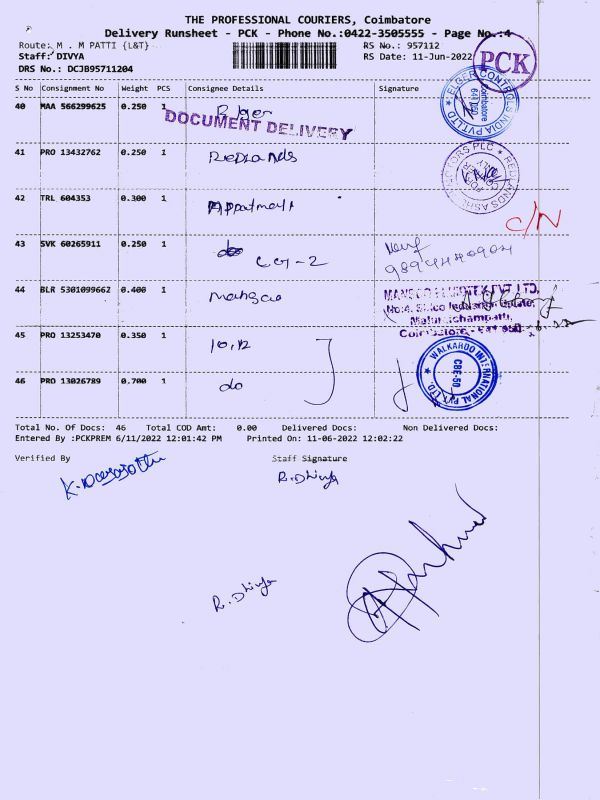 THE PROFESSIONAL COURIERS, Coimbatore
Delivery Runsheet - PCK - Phone No.:0422-3505555 - Page No.:4
Route: M . M PATTI {L&T}
RS No.: 957112
Staff: DIVYA
RS Date: 11-Jun-2022
DRS No.: DCJB95711204
PCK
S No Consignment No Weight PCS Consignee Details Signature
40 MAA 566299625 0.250 1 Elger
DOCUMENT DELIVERY
ELGER CONTROLS INDIA PVT LTD
Coimbatore
41 PRO 13432762 0.250 1 Redlands
REDLANDS MOTORS PLC
42 TRL 604353 0.300 1 Appatment
C/N
43 SVK 60265911 0.250 1 do CCI-2
44 BLR 5301099662 0.400 1
45 PRO 13253470 0.350 1 10,12
WALKAROO INTERNATIONAL PVT. LTD.
CBE-50
46 PRO 13026789 0.700 1 do
Total No. Of Docs: 46 Total COD Amt: 0.00 Delivered Docs: Non Delivered Docs:
Entered By :PCKPREM 6/11/2022 12:01:42 PM Printed On: 11-06-2022 12:02:22
Verified By Staff Signature
R. Dhivya
R. Dhivya